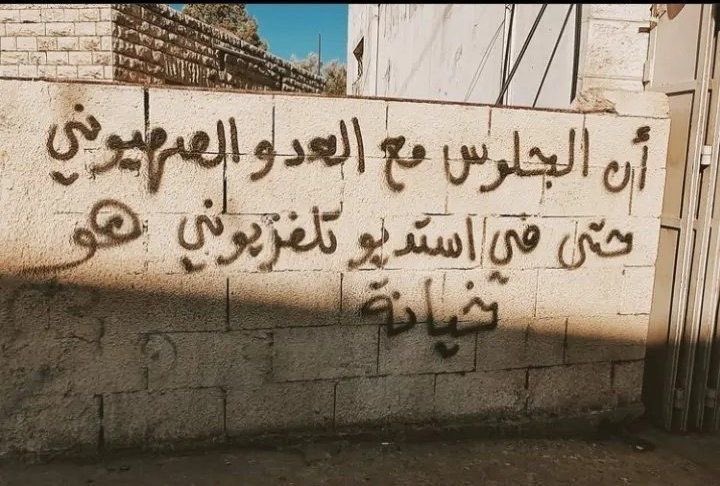 أن الجلوس مع العدو الصهيوني
حتى في استديو تلفزيوني هو
خيانة